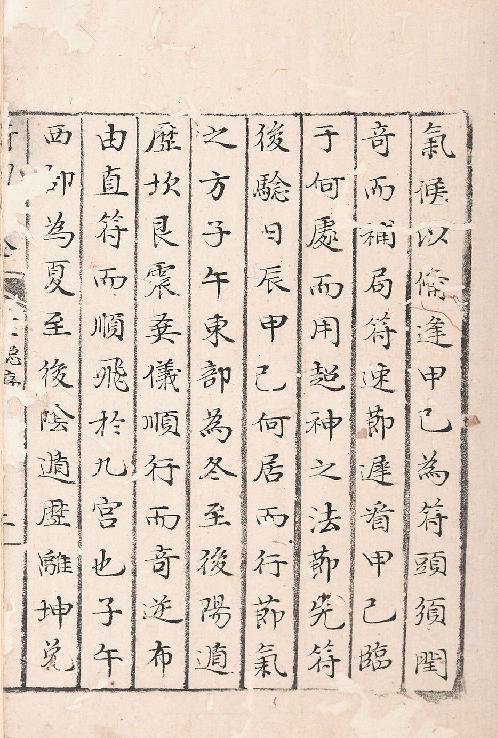 氣候以備逢甲己為符頭須閏
竒而補局符速莭遲看甲己臨
于何處而用超神之法莭先符
後驗日辰甲己何居而行莭氣
之方子午東部為冬至後陽遁
歷坎艮震巽儀順行而竒逆布
由直符而順飛於九宮也子午
西卽為夏至後陰遁歷離坤兌